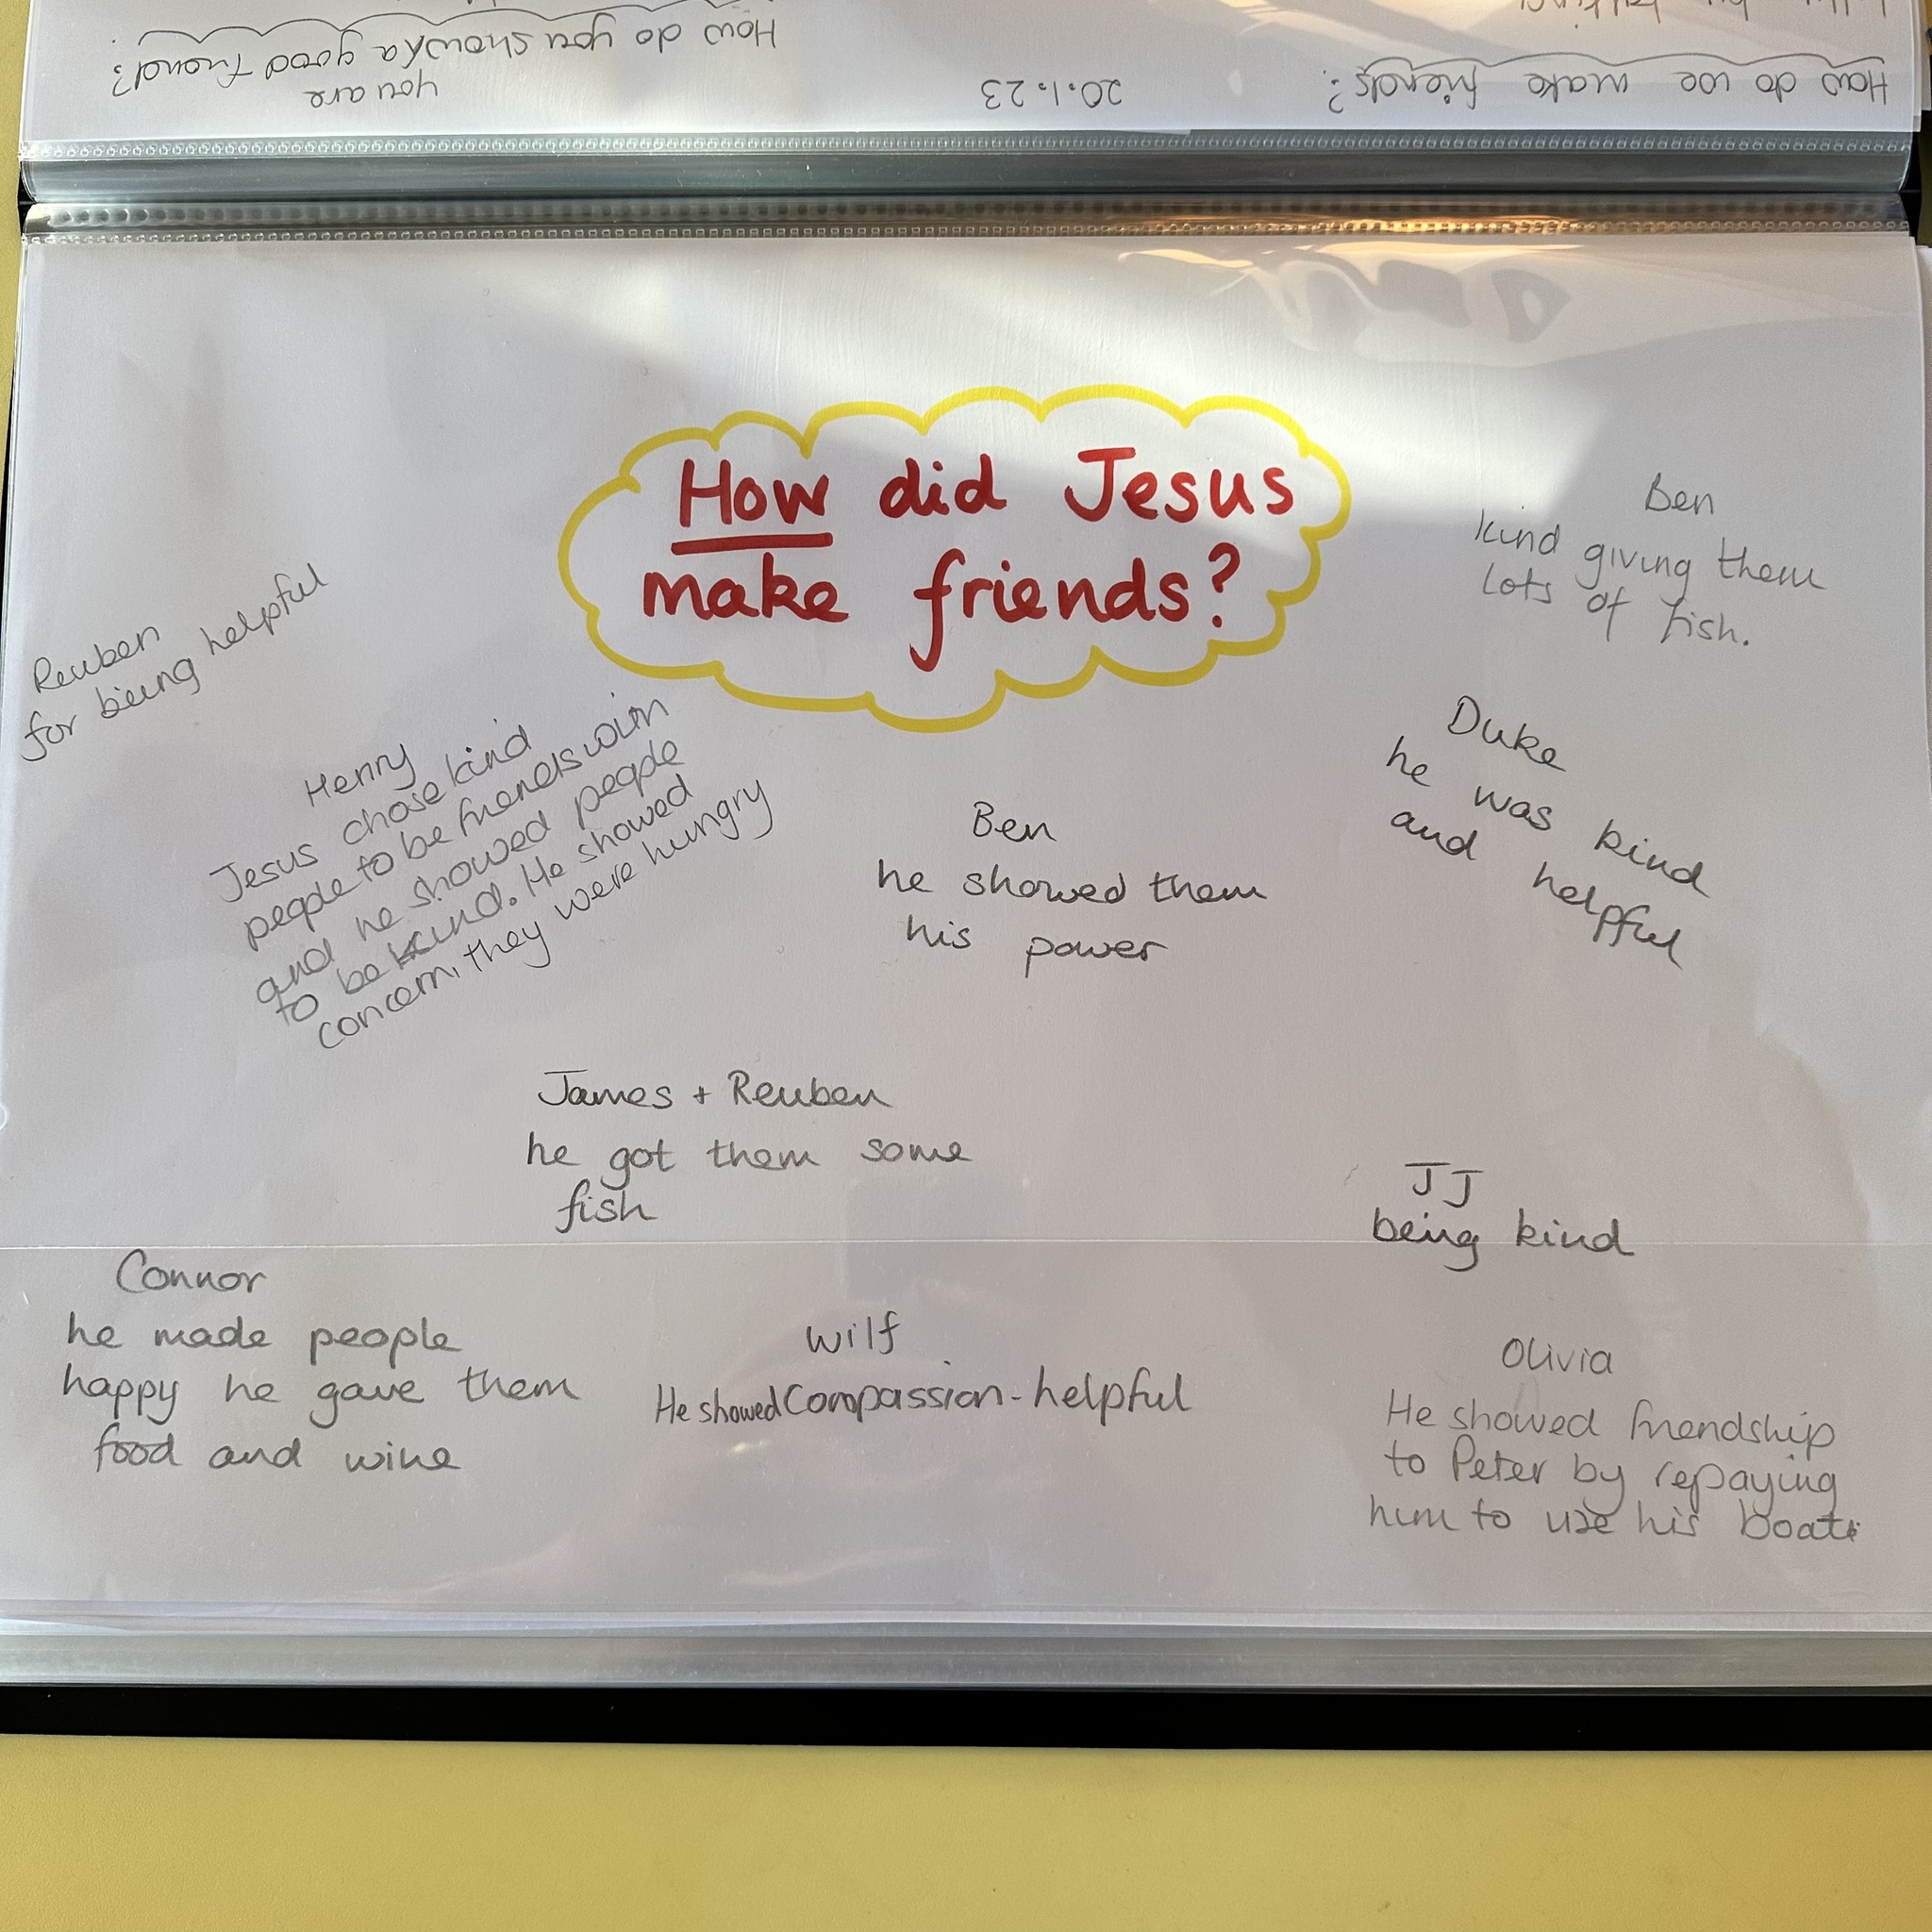 How do we make friends?
20.1.23
you are
How do you show a good friend?
How did Jesus
make friends?
Ben
kind giving them
lots of fish.
Reuben
for being helpful
Henry
Jesus chose kind
people to be friends with
and he showed people
to be kind. He showed
concern, they were hungry
Ben
he showed them
his power
Duke
he was kind
and helpful
James + Reuben
he got them some
fish
JJ
being kind
Connor
he made people
happy he gave them
food and wine
Wilf
He showed Compassion - helpful
Olivia
He showed friendship
to Peter by repaying
him to use his boat